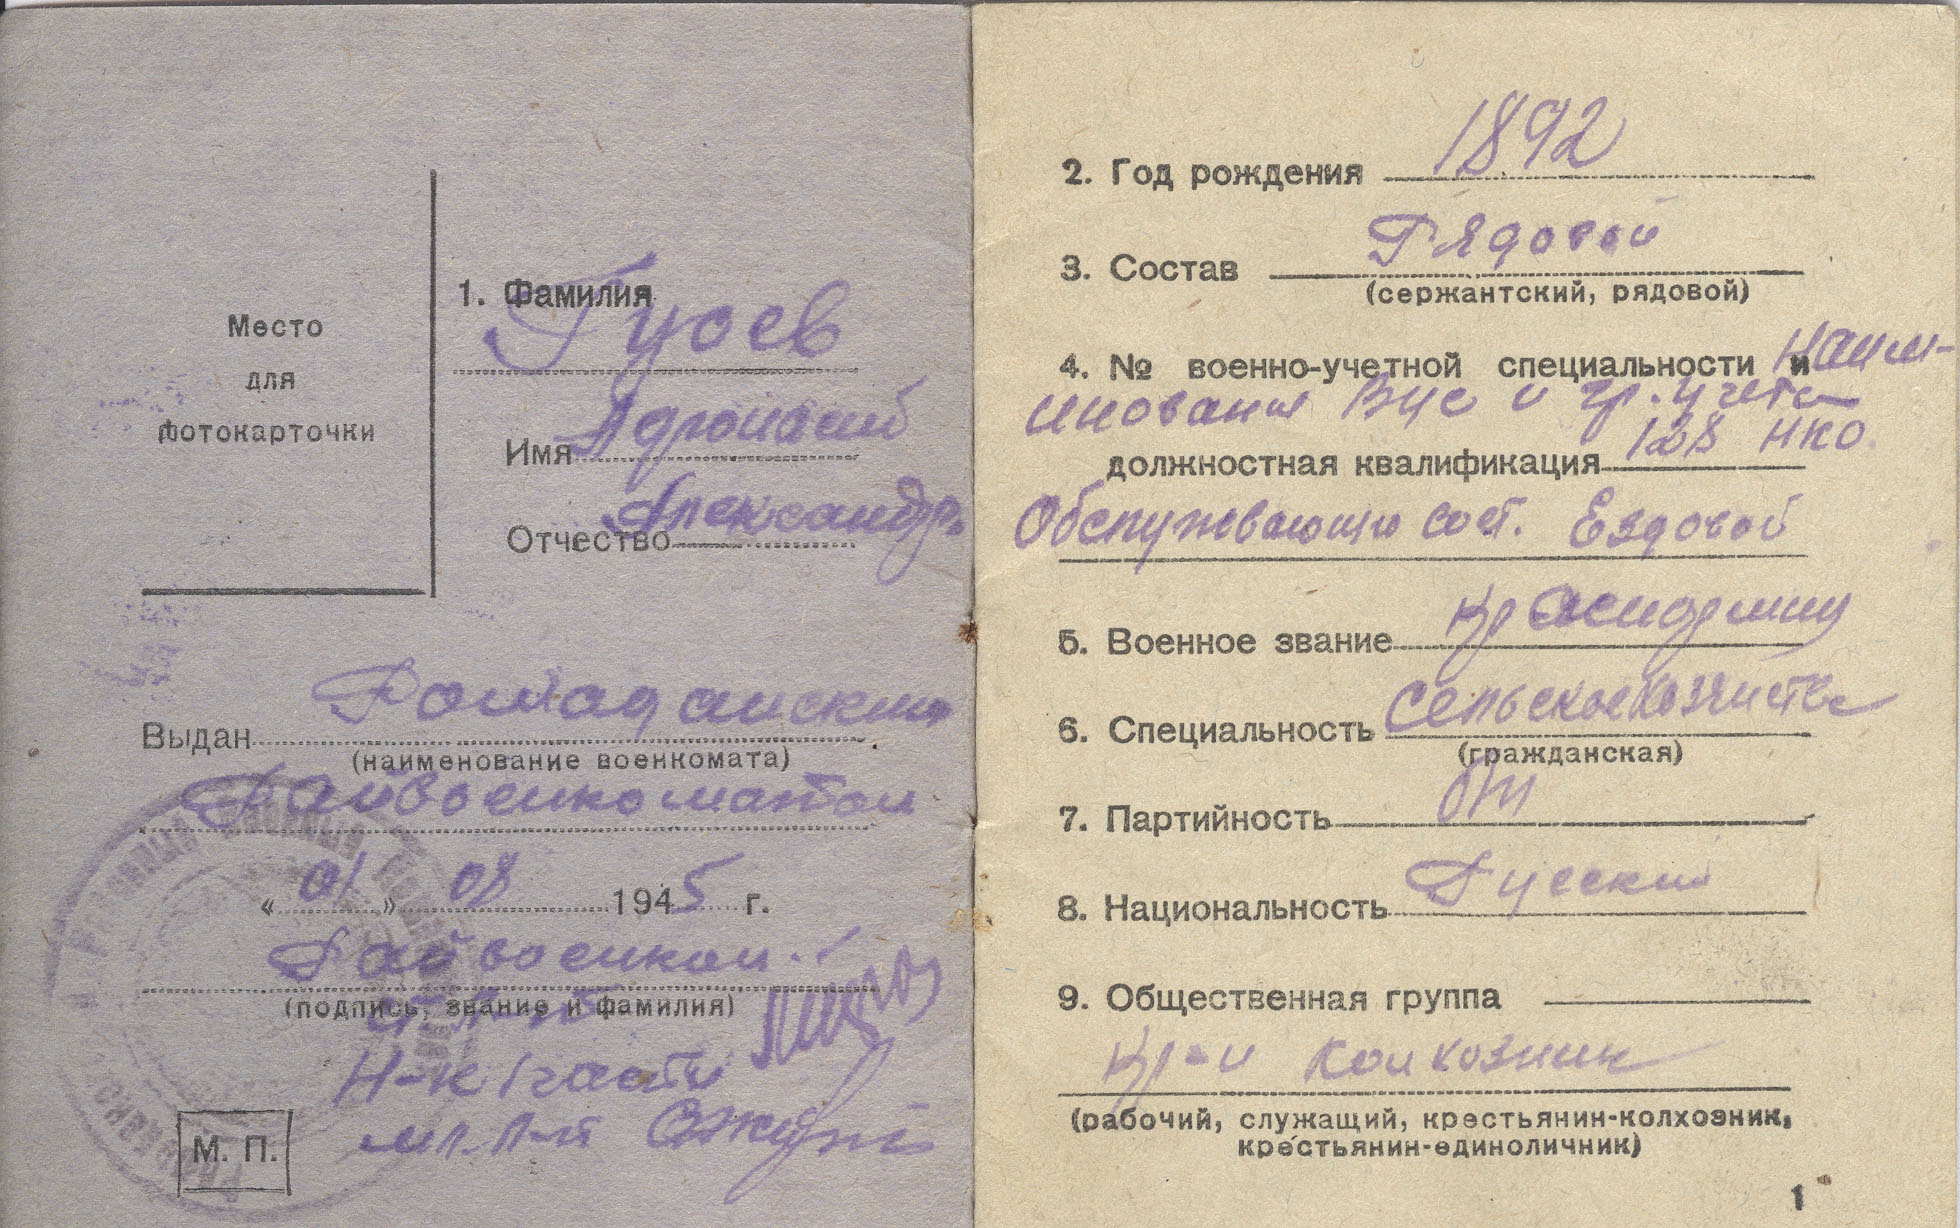 Место
для
фотокарточки
1. Фамилия Гусев
Имя
Отчество Александр.
Выдан Ромадановским
(наименование военкомата)
Райвоенкоматом
«01» 08 1945 г.
Райвоенком
(подпись, звание и фамилия)
Н-к 1 части
мл. л-т
М. П.
2. Год рождения 1892
3. Состав Рядовой
(сержантский, рядовой)
4. № военно-учетной специальности и наим-
енование ВУС и гр. учета
должностная квалификация 128 НКО
Обслуживающи сост. Ездовой
5. Военное звание красноармиец
6. Специальность сельскоехозяйство
(гражданская)
7. Партийность б/п
8. Национальность Русский
9. Общественная группа
кр-н колхозник
(рабочий, служащий, крестьянин-колхозник,
крестьянин-единоличник)
1